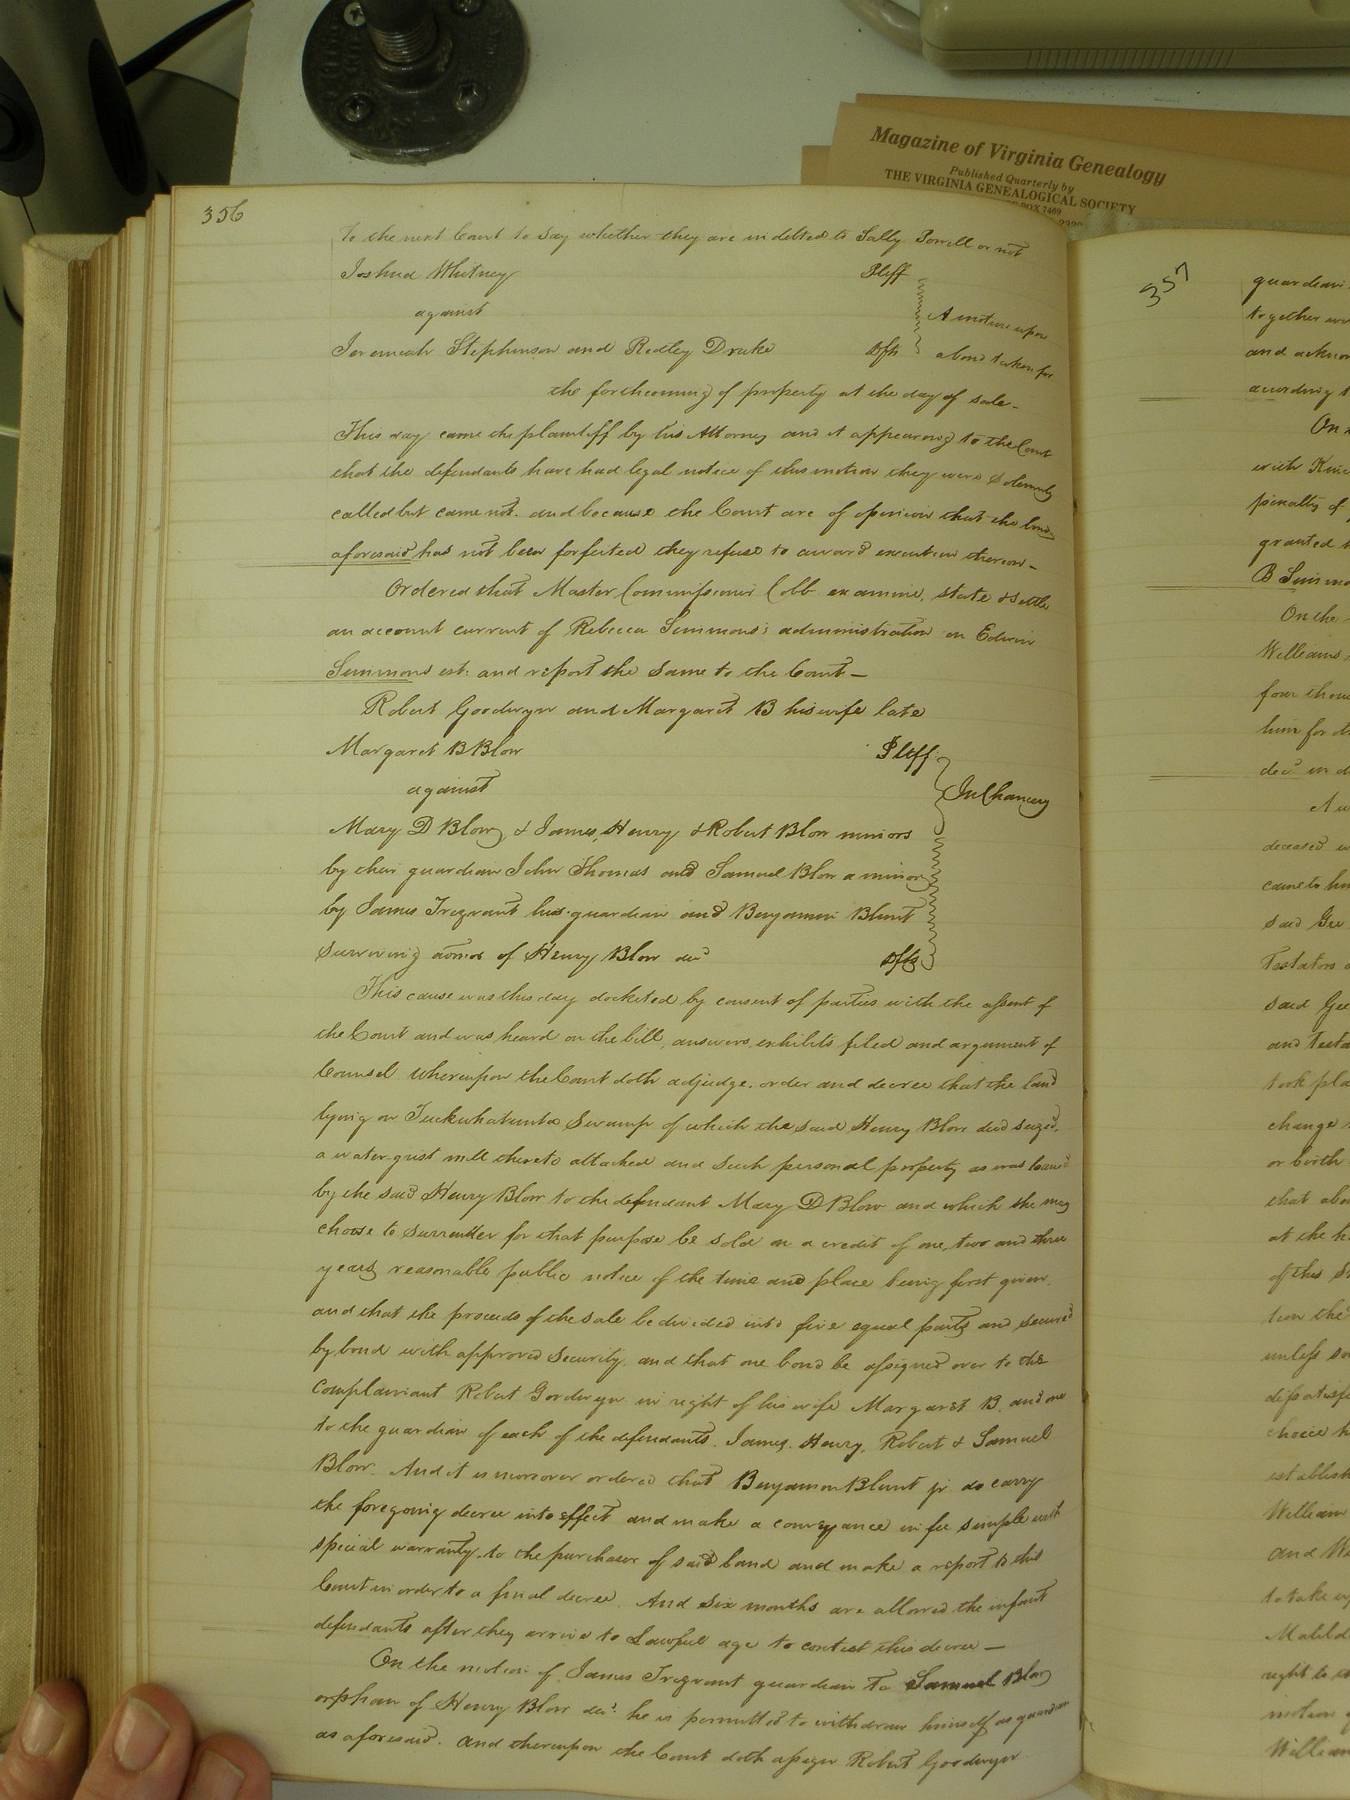 Magazine of Virginia Genealogy
Published Quarterly by
THE VIRGINIA GENEALOGICAL SOCIETY
BOX 7469
356
To the next Court to Say whether they are indebted to Sally Powell or not
Joshua Whitney Pltff
against A motion upon
Jeremiah Stephenson and Ridley Drake Dfts a bond taken for
the forthcoming of property at the day of sale-
This day came the plaintiff by his Attorney and it appearing to the Court
that the defendants have had legal notice of this motion they were Solemnly
called but came not. and because the Court are of opinion that the bond
aforesaid has not been forfeited they refuse to award execution thereon-
Ordered that Master Commissioner Cobb examine, state & settle
an account current of Rebecca Simmons's administration on Edwin
Simmons est: and report the Same to the Court-
Robert Goodwyn and Margaret B his wife late
Margaret B Blow Pltff
against In Chancery
Mary D Blow, & James, Henry & Robert Blow minors
by their guardian John Thomas and Samuel Blow a minor
by James Trezvant his guardian and Benjamin Blunt
Surviving admor of Henry Blow decd Dfts
This cause was this day docketed by consent of parties with the assent of
the Court and was heard on the bill, answers, exhibits filed and argument of
Counsel Whereupon the Court doth adjudge, order and decree that the land
lying on Tuckwhatunta Swamp of which the said Henry Blow died seized,
a water grist mill thereto attached and such personal property as was loaned
by the said Henry Blow to the defendant Mary D Blow and which she may
choose to surrender for that purpose be sold on a credit of one, two and three
years reasonable public notice of the time and place being first given.
and that the proceeds of the sale be divided into five equal parts and secured
by bond with approved Security, and that one bond be assigned over to the
Complainant Robert Goodwyn in right of his wife Margaret B. and one
to the guardian of each of the defendants, James, Henry, Robert & Samuel
Blow. And it is moreover ordered that Benjamin Blunt jr. do carry
the foregoing decree into effect and make a conveyance in fee simple with
special warranty, to the purchaser of said land and make a report to this
Court in order to a final decree. And six months are allowed the infant
defendants after they arrive to Lawful age to contest this decree-
On the motion of James Trezvant guardian to Samuel Blow
orphan of Henry Blow decd. he is permitted to withdraw himself as guardian
as aforesaid. and thereupon the Court doth assign Robert Goodwyn
357
guardian
together
and
according
On
with
penalty of
granted
B Simmons
On the
Williams
four
him for
decd in
deceased
came to
said
Testators
said
and
took
change
or birth
that
at the
of this
tion the
unless
choice
establish
William
and
to take
Matilda
right to
motion
William